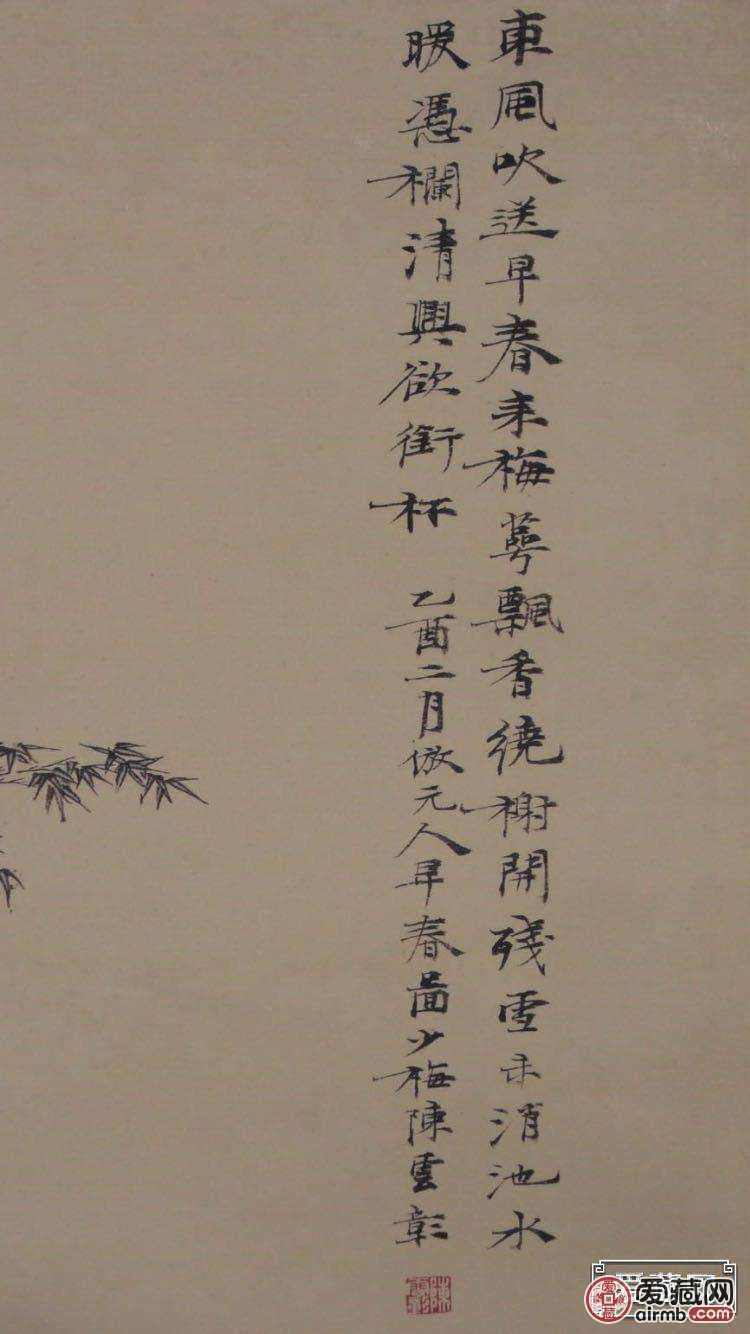 東風吹送早春来梅萼飄香繞榭開残雪未消池水
暖憑欄清興欲銜杯 乙酉二月倣元人早春啚少梅陳雲彰
爱藏网
airmb.com